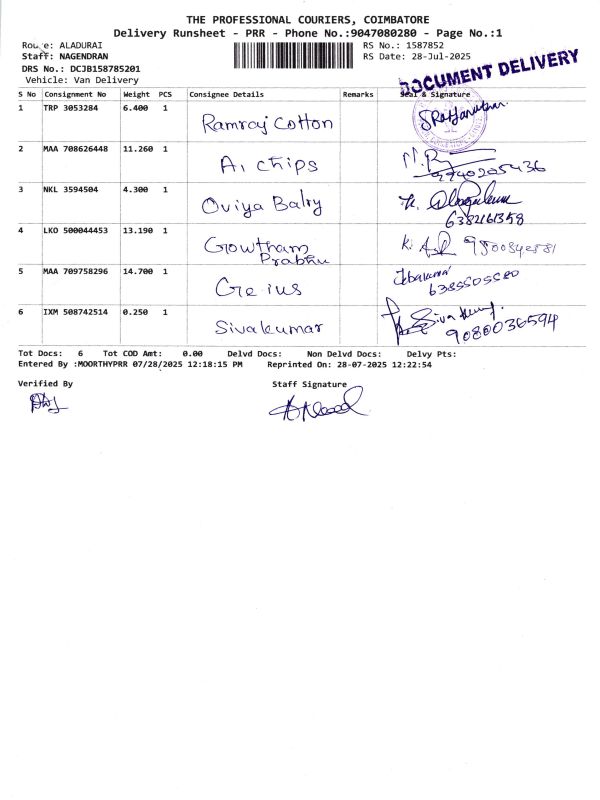 THE PROFESSIONAL COURIERS, COIMBATORE
Delivery Runsheet - PRR - Phone No.:9047080280 - Page No.:1
Route: ALADURAI
RS No.: 1587852
Staff: NAGENDRAN
RS Date: 28-Jul-2025
DRS No.: DCJB158785201
DOCUMENT DELIVERY
Vehicle: Van Delivery
S No Consignment No Weight PCS Consignee Details Remarks Seal & Signature
1 TRP 3053284 6.400 1 Ramraj Cotton
2 MAA 708626448 11.260 1 A1 chips 9740205436
3 NKL 3594504 4.300 1 Oviya Balry 6382161358
4 LKO 500044453 13.190 1 Gowtham Prabhu K.
5 MAA 709758296 14.700 1 Ge ius
6 IXM 508742514 0.250 1 Sivakumar 9080036594
Tot Docs: 6 Tot COD Amt: 0.00 Delvd Docs: Non Delvd Docs: Delvy Pts:
Entered By :MOORTHYPRR 07/28/2025 12:18:15 PM Reprinted On: 28-07-2025 12:22:54
Verified By Staff Signature